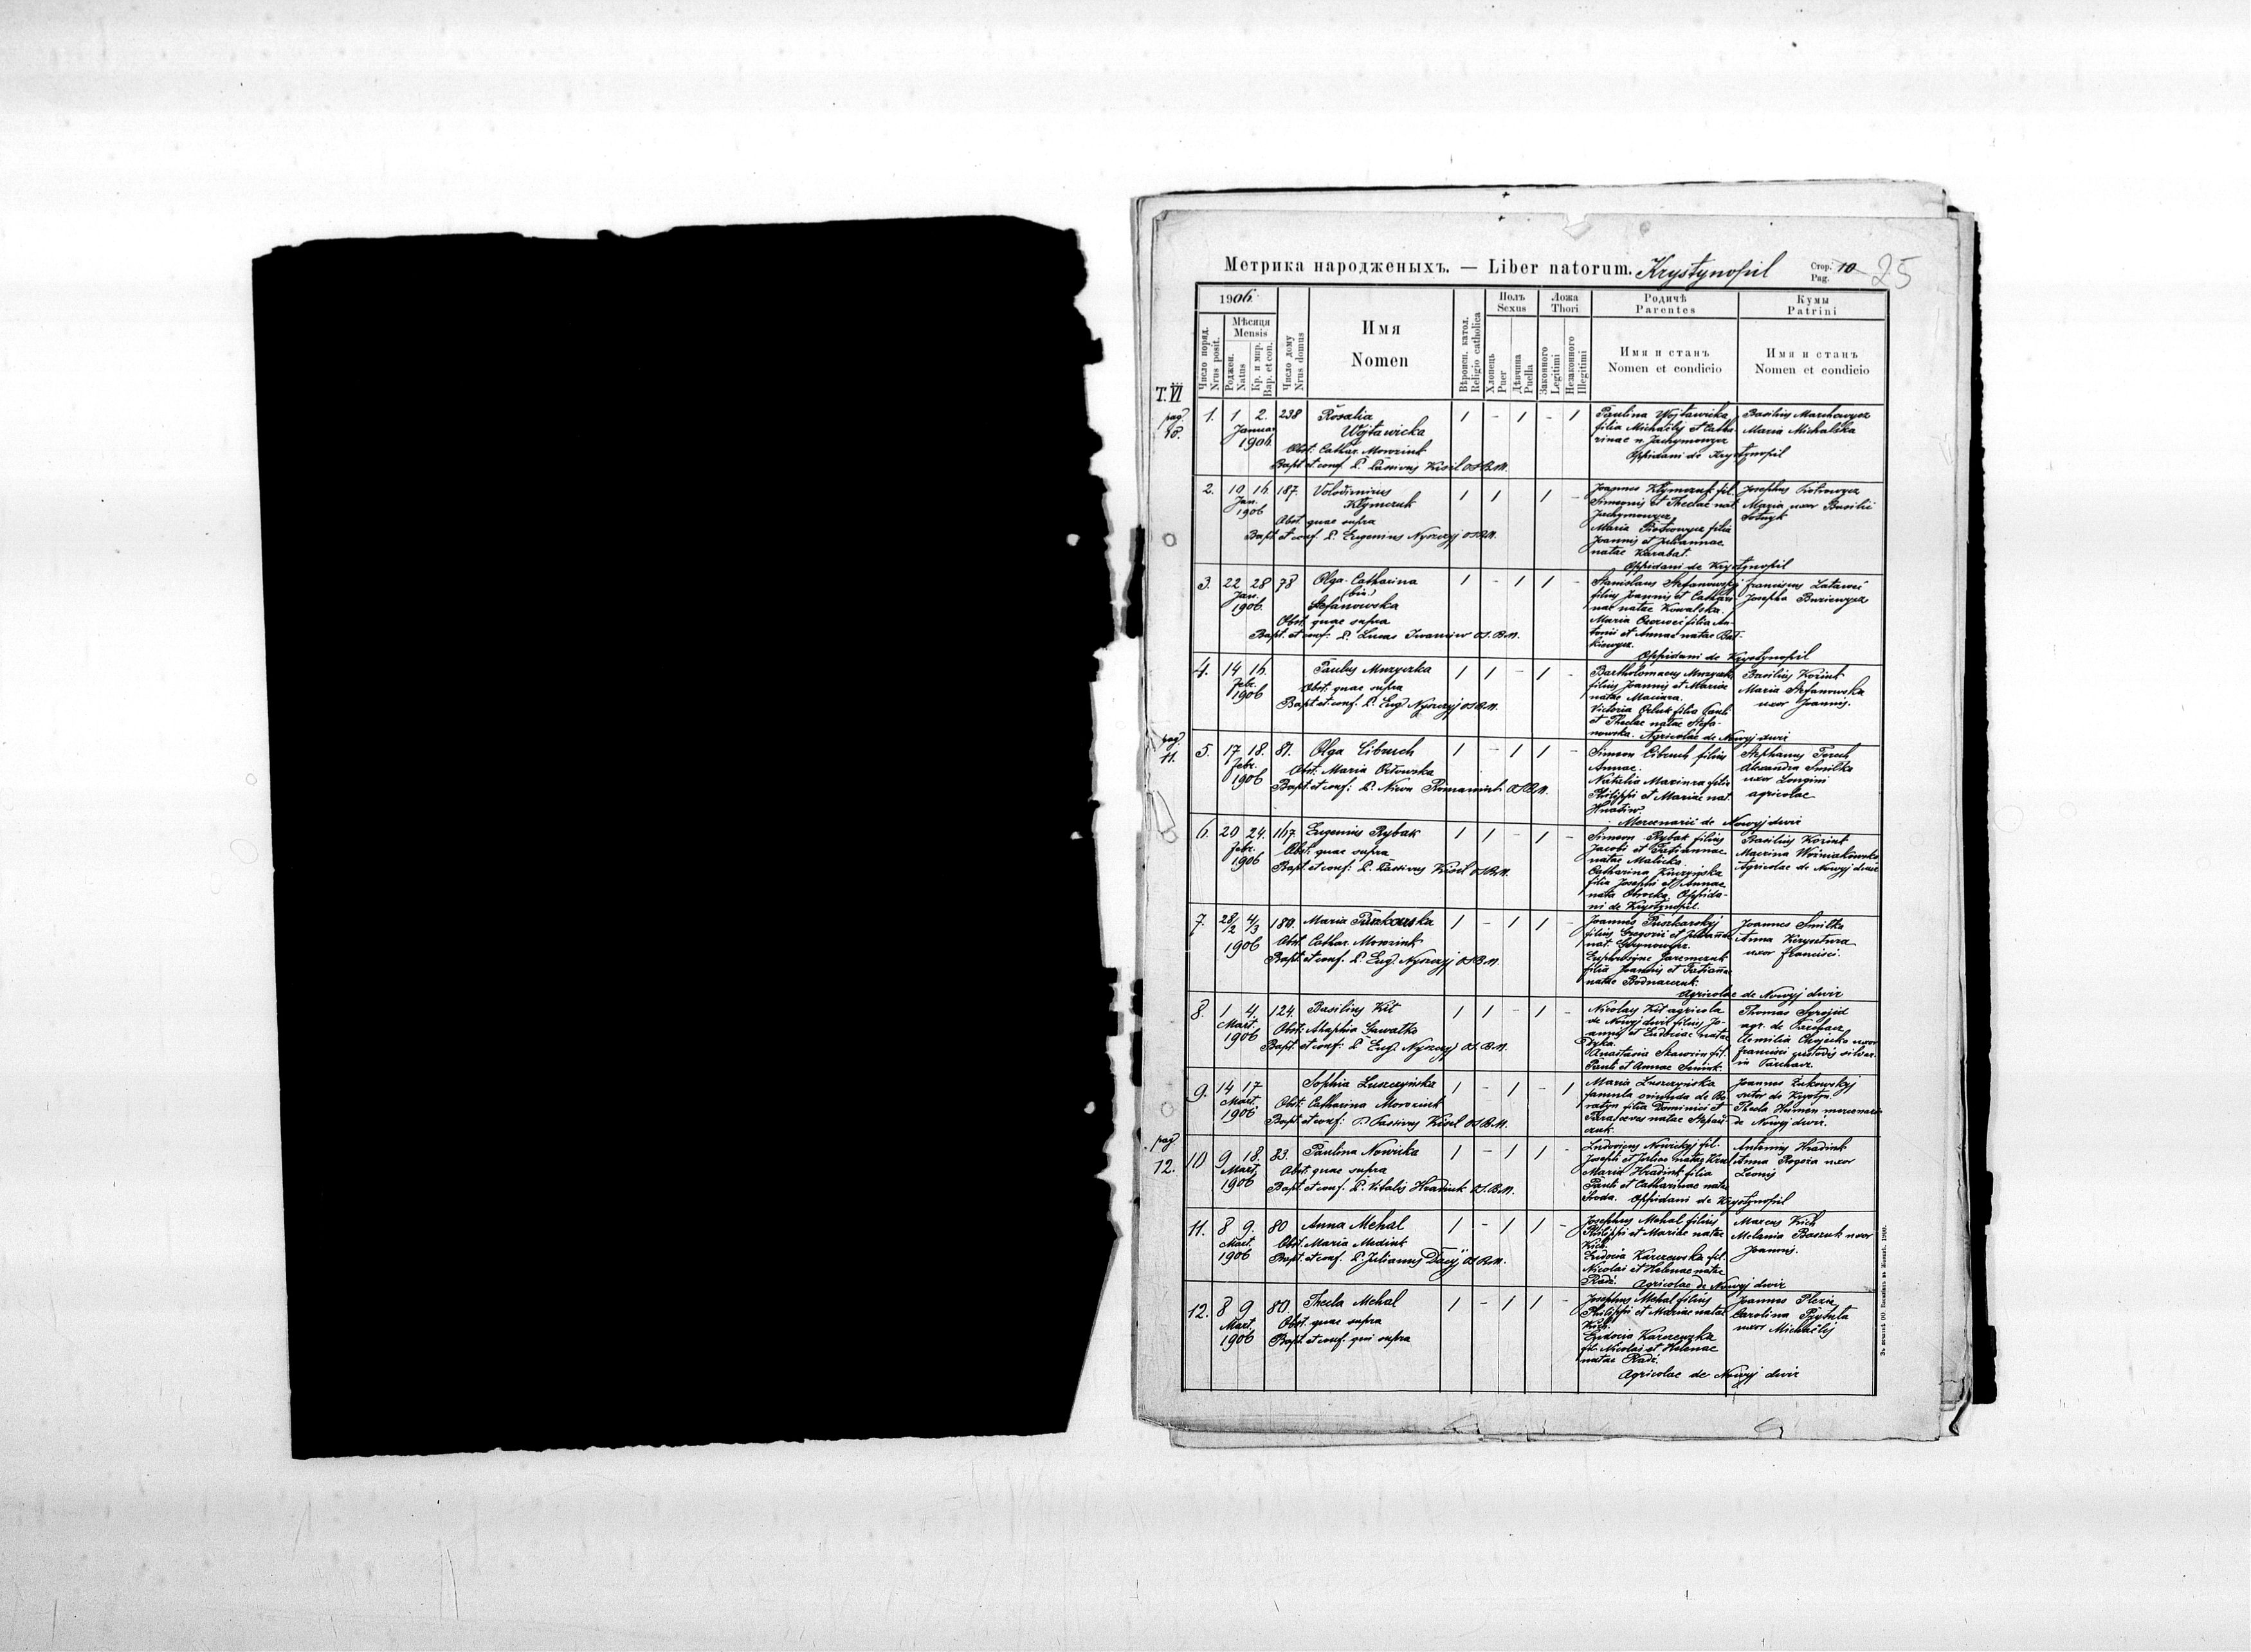 Метрика народженыхъ. — Liber natorum. Krystynopil
Стор. 10 25
Pag.
1906
Число поряд.
Nrus posit.
Мѣсяця
Mensis
Роджен.
Natus
Кр. и мир.
Bap. et con.
Число дому
Nrus domus
Имя
Nomen
Вѣроисп. катол.
Religio catholica
Полъ
Sexus
Хлопець
Puer
Дѣвчина
Puella
Ложа
Thori
Законного
Legitimi
Незаконного
Illegitimi
Родичѣ
Parentes
Имя и станъ
Nomen et condicio
Кумы
Patrini
Имя и станъ
Nomen et condicio
T. VI
pag.
10.
1. 1 2. 238 Rosalia 1 - 1 - 1
Januar Wojtawicka
1906
Obst. Cathar. Morozink
Bapt. et conf. P. Passivus Kisil OSBM.
Paulina Wojtawicka
filia Michaëlis et Catha
rinae n. Jachymowycz
Oppidani de Krystynopil
Basilius Marchowycz
Maria Michalska
2. 10 16. 187. Volodimirus 1 1 1 -
Jan. Klymczuk
1906
Obst. quae supra
Bapt. et conf. P. Eugenius Nyszczyj OSBM.
Joannes Klymczuk fil.
Simeonis et Theclae nat
Jachymowycz
Maria Piotrowycz filia
Joannis et Juliannae
natae Karabat.
Oppidani de Krystynopil
Josephus Piotrowycz
Maria uxor Basilii
3. 22 28 78 Olga-Catharina 1 - 1 1 -
Jan. (bin.)
1906. Stefanowska
Obst. quae supra
Bapt. et conf: P. Lucas Iwaniw O.S.B.M.
Stanislaus Stefanowskyj
filius Joannis et Cathari
nae natae Kowalska.
filia An-
tonii et Annae natae
Oppidani de Krystynopil
Franciscus
Josepha
4. 14 16. Paulus Muzyczka 1 1 - 1 -
Febr.
1906
Obst. quae supra
Bapt. et conf. P. Eug. Nyszczyj OSBM.
Bartholomaeus
filius Joannis et Mariae
natae Maciura.
Victoria filia Pauli
et Theclae natae Stefa-
nowska. Agricolae de Nowyj dwir
Basilius Kozink
Maria Stefanowska
uxor Joannis.
pag
11.
5. 17 18. 81. Olga Cibruch 1 - 1 1 -
Febr.
1906
Obst. Maria Orłowska
Bapt. et conf: P. Nicon Romaniuk OSBM.
Simeon Cibruch filius
Annae.
Natalia filia
Philippi et Mariae nat.
Hnatiw.
Mercenarii de Nowyj dwir
Stephanus
Alexandra Smilka
uxor Longini
agricolae
6. 20 24. 167. Eugenius Rybak 1 1 - 1 -
Febr.
1906
Obst. quae supra
Bapt. et conf: P. Passivus Kisil OSBM.
Simeon Rybak filius
Jacobi et Tatiannae
natae Malicka.
Catharina Kuczyńska
filia Josephi et Annae
nata Oppida-
ni de Krystynopil.
Basilius Kozink
Macrina Woźniakowska
Agricolae de Nowyj dwir
7. 28/2 4/3 180. Maria 1 - 1 1 -
1906
Obst. Cathar. Morozink
Bapt. et conf. P. Eug. Nyszczyj OSBM.
Joannes Puszkarskyj
filius Gregorii et Juliannae
nat.
filia Joannis et Tatianna
natae Bodnarczuk.
Agricolae de Nowyj dwir
Joannes Smilka
Anna
uxor Francisci.
8. 1 4. 124. Basilius Kit 1 1 - 1 -
Mart.
1906
Obst. Ahaphia Gawalko
Bapt. et conf: P. Eug. Nyszczyj O.S.B.M.
Nicolaus Kit agricola
de Nowyj dwir filius Jo-
annis et Eudociae natae
Dyka.
Anastasia fil.
Pauli et Annae
Thomas Syrojid
agr. de Parchacz
Aemilia uxor
Francisci custodis silvar.
in Parchacz.
9. 14 17 Sophia Luszczyńska 1 - 1 - 1
Mart.
1906
Obst. Catharina Morozink
Bapt. et conf: P. Passivus Kisil OSBM.
Maria Luszczyńska
famula oriunda de Bo
ratyn filia Dominici et
Parascevae natae
czuk.
Joannes Żukowskyj
sutor de Krystyn.
Thecla
de Nowyj dwir.
pag
12.
10 9 18. 83. Paulina Nowicka 1 - 1 1 -
Mart.
1906
Obst. quae supra
Bapt. et conf. P. Vitalis Hradiuk O.S.B.M.
Ludovicus Nowickyj fil.
Josephi et Juliae natae
Maria Hradiuk filia
Pauli et Catharinae natae
Sroda. Oppidani de Krystynopil
Antonius Hradiuk
Anna Rogoża uxor
Leonis
11. 8 9. 80 Anna Mehal 1 - 1 1 -
Mart.
1906
Obst. Maria Mediuk
Bapt. et conf. P. Julianus Dacij OSBM.
Josephus Mehal filius
Philippi et Mariae natae
Kich.
Eudocia Karczewska fil.
Nicolai et Helenae natae
Radi. Agricolae de Nowyj dwir
Marcus Kich
Melania uxor
Joannis.
12. 8 9 80. Thecla Mehal 1 - 1 1 -
Mart.
1906
Obst. quae supra
Bapt. et conf. qui supra
Josephus Mehal filius
Philippi et Mariae natae
Kich.
Eudocia Karczewska
fil. Nicolai et Helenae
natae Radi.
Agricolae de Nowyj dwir
Joannes
Carolina Przybyła
uxor Michaëlis